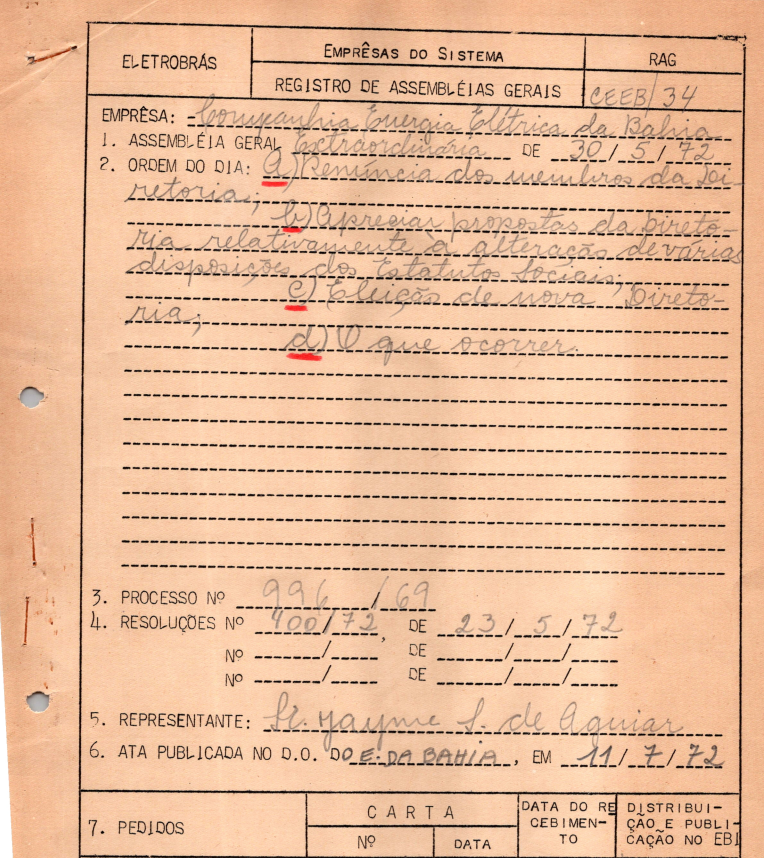 ELETROBRÁS
EMPRÊSAS DO SISTEMA
RAG
REGISTRO DE ASSEMBLÉIAS GERAIS
CEEB/34
EMPRÊSA: Companhia Energia Elétrica da Bahia
1. ASSEMBLÉIA GERAL Extraordinária DE 30/5/72
2. ORDEM DO DIA: a) Renúncia dos membros da Di-
retoria;
b) Apreciar propostas da Direto-
ria relativamente à alteração de várias
disposições dos Estatutos Sociais;
c) Eleição de nova Direto-
ria;
d) O que ocorrer.
3. PROCESSO Nº 996/69
4. RESOLUÇÕES Nº 400/72, DE 23/5/72
Nº / DE / /
Nº / DE / /
5. REPRESENTANTE: Sr. Jayme S. de Aguiar
6. ATA PUBLICADA NO D.O. DO E. DA BAHIA, EM 11/7/72
7. PEDIDOS
CARTA
Nº
DATA
DATA DO RE
CEBIMEN-
TO
DISTRIBUI-
ÇÃO E PUBLI-
CAÇÃO NO EBI